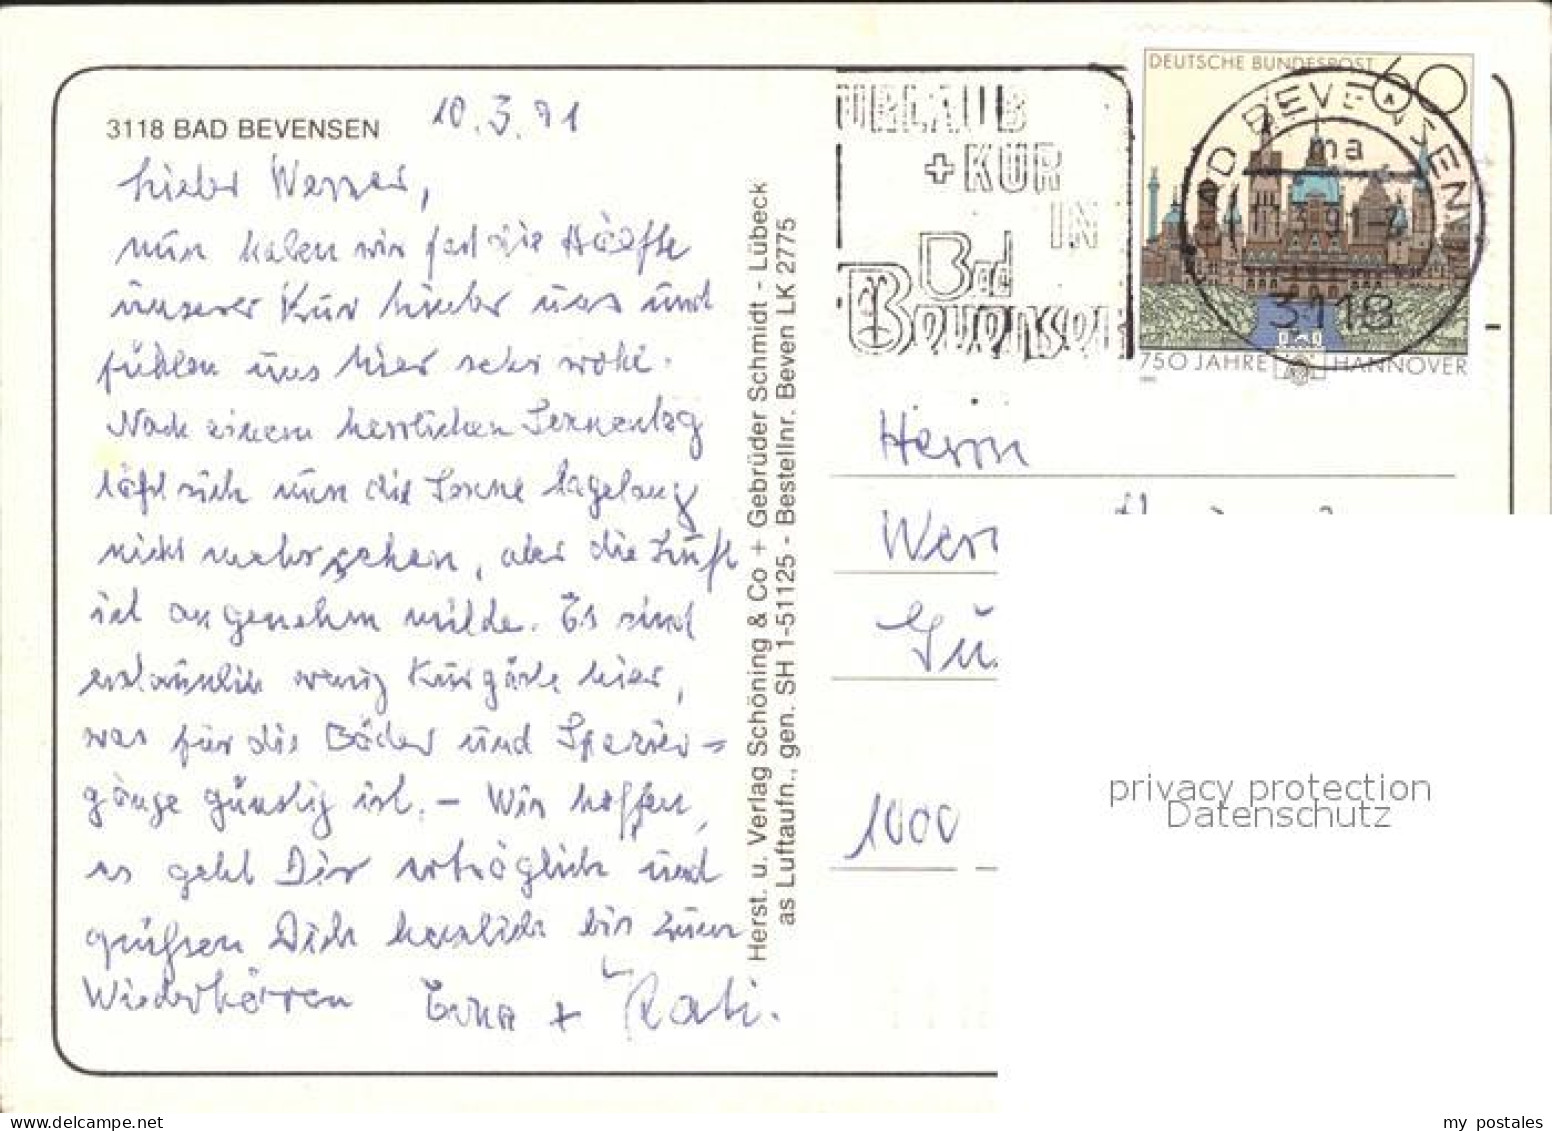 3118 BAD BEVENSEN
10.3.91
Lieber Werner,
nun haben wir fast die Hälfte
unserer Kur hinter uns und
fühlen uns hier sehr wohl.
Nach einem herrlichen Sonnentag
läßt sich nun die Sonne tagelang
nicht mehr sehen, aber die Luft
ist angenehm milde. Es sind
erstaunlich wenig Kurgäste hier,
was für die Bäder und Spazier=
gänge günstig ist. – Wir hoffen,
es geht Dir erträglich und
grüßen Dich herzlich bis zum
Wiederhören
Erna + Kati.
Herst. u. Verlag Schöning & Co + Gebrüder Schmidt - Lübeck
as Luftaufn., gen. SH 1-51125 - Bestellnr. Beven LK 2775
URLAUB
+ KUR
IN
Bad
Bevensen
DEUTSCHE BUNDESPOST 60
750 JAHRE HANNOVER
BAD BEVENSEN
ma
3118
Herrn
Wer
1000
privacy protection
Datenschutz
my postales